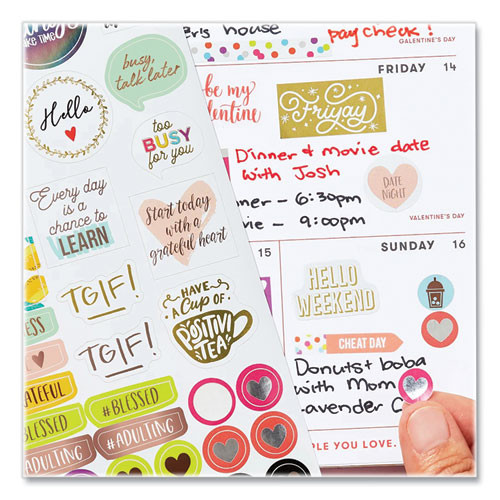 TAKE TIME
busy,
talk later
Hello
too
BUSY
for you
Every day
is a
chance to
LEARN
Start today
with a
grateful heart
TGIF!
TGIF!
HAVE
A CUP OF
POSITIVI
TEA
#BLESSED
#BLESSED
#ADULTING
#ADULTING
house
pay check!
GALENTINE'S DAY
FRIDAY 14
be my
Friyay
Dinner & movie date
with Josh
- 6:30pm
- 9:00pm
DATE
NIGHT
VALENTINE'S DAY
15
SUNDAY 16
HELLO
WEEKEND
CHEAT DAY
Donuts + boba
with Mom
PLE YOU LOVE.